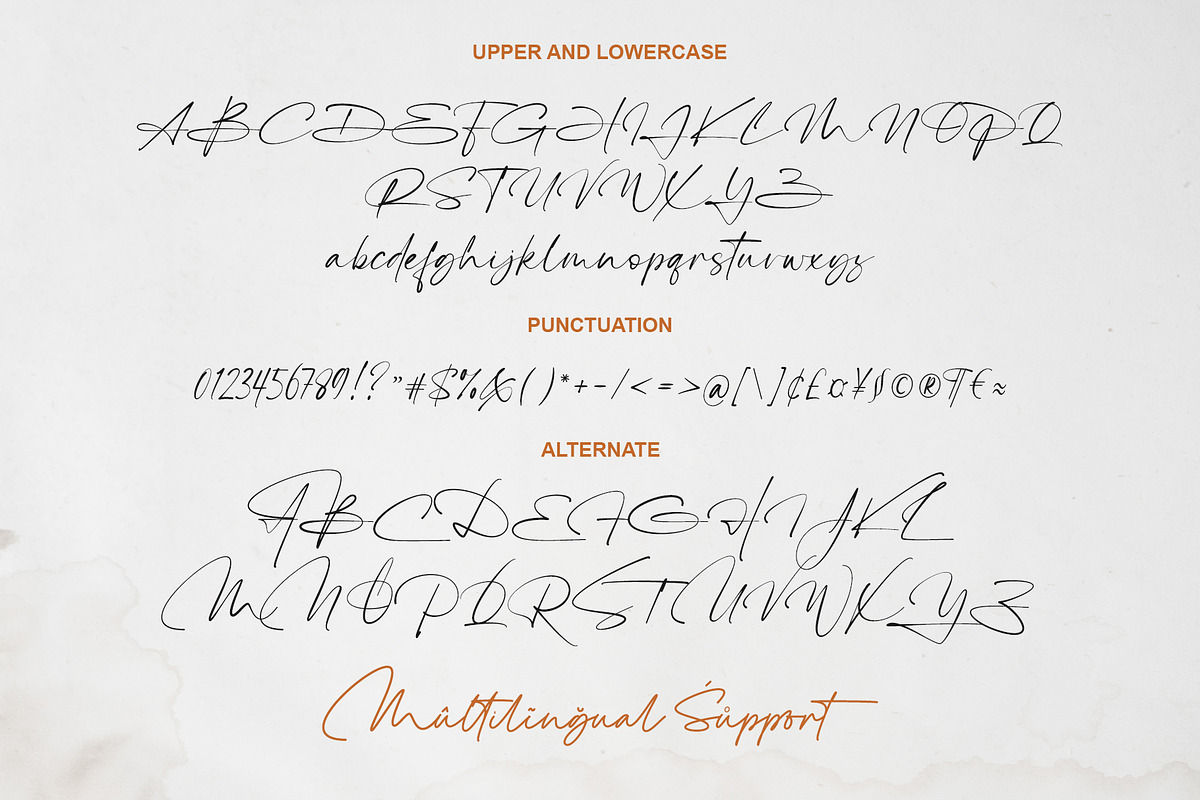 UPPER AND LOWERCASE
ABCDEFGHIJKLMNOPQ
RSTUVWXYZ
abcdefghijklmnopqrstuvwxyz
PUNCTUATION
0123456789!?"#$%&()*+-/<=>@[\]¢£¤¥§©®¶€≈
ALTERNATE
ABCDEFGHIJKL
MNOPQRSTUVWXYZ
Mûltilĩnğual Śůppört